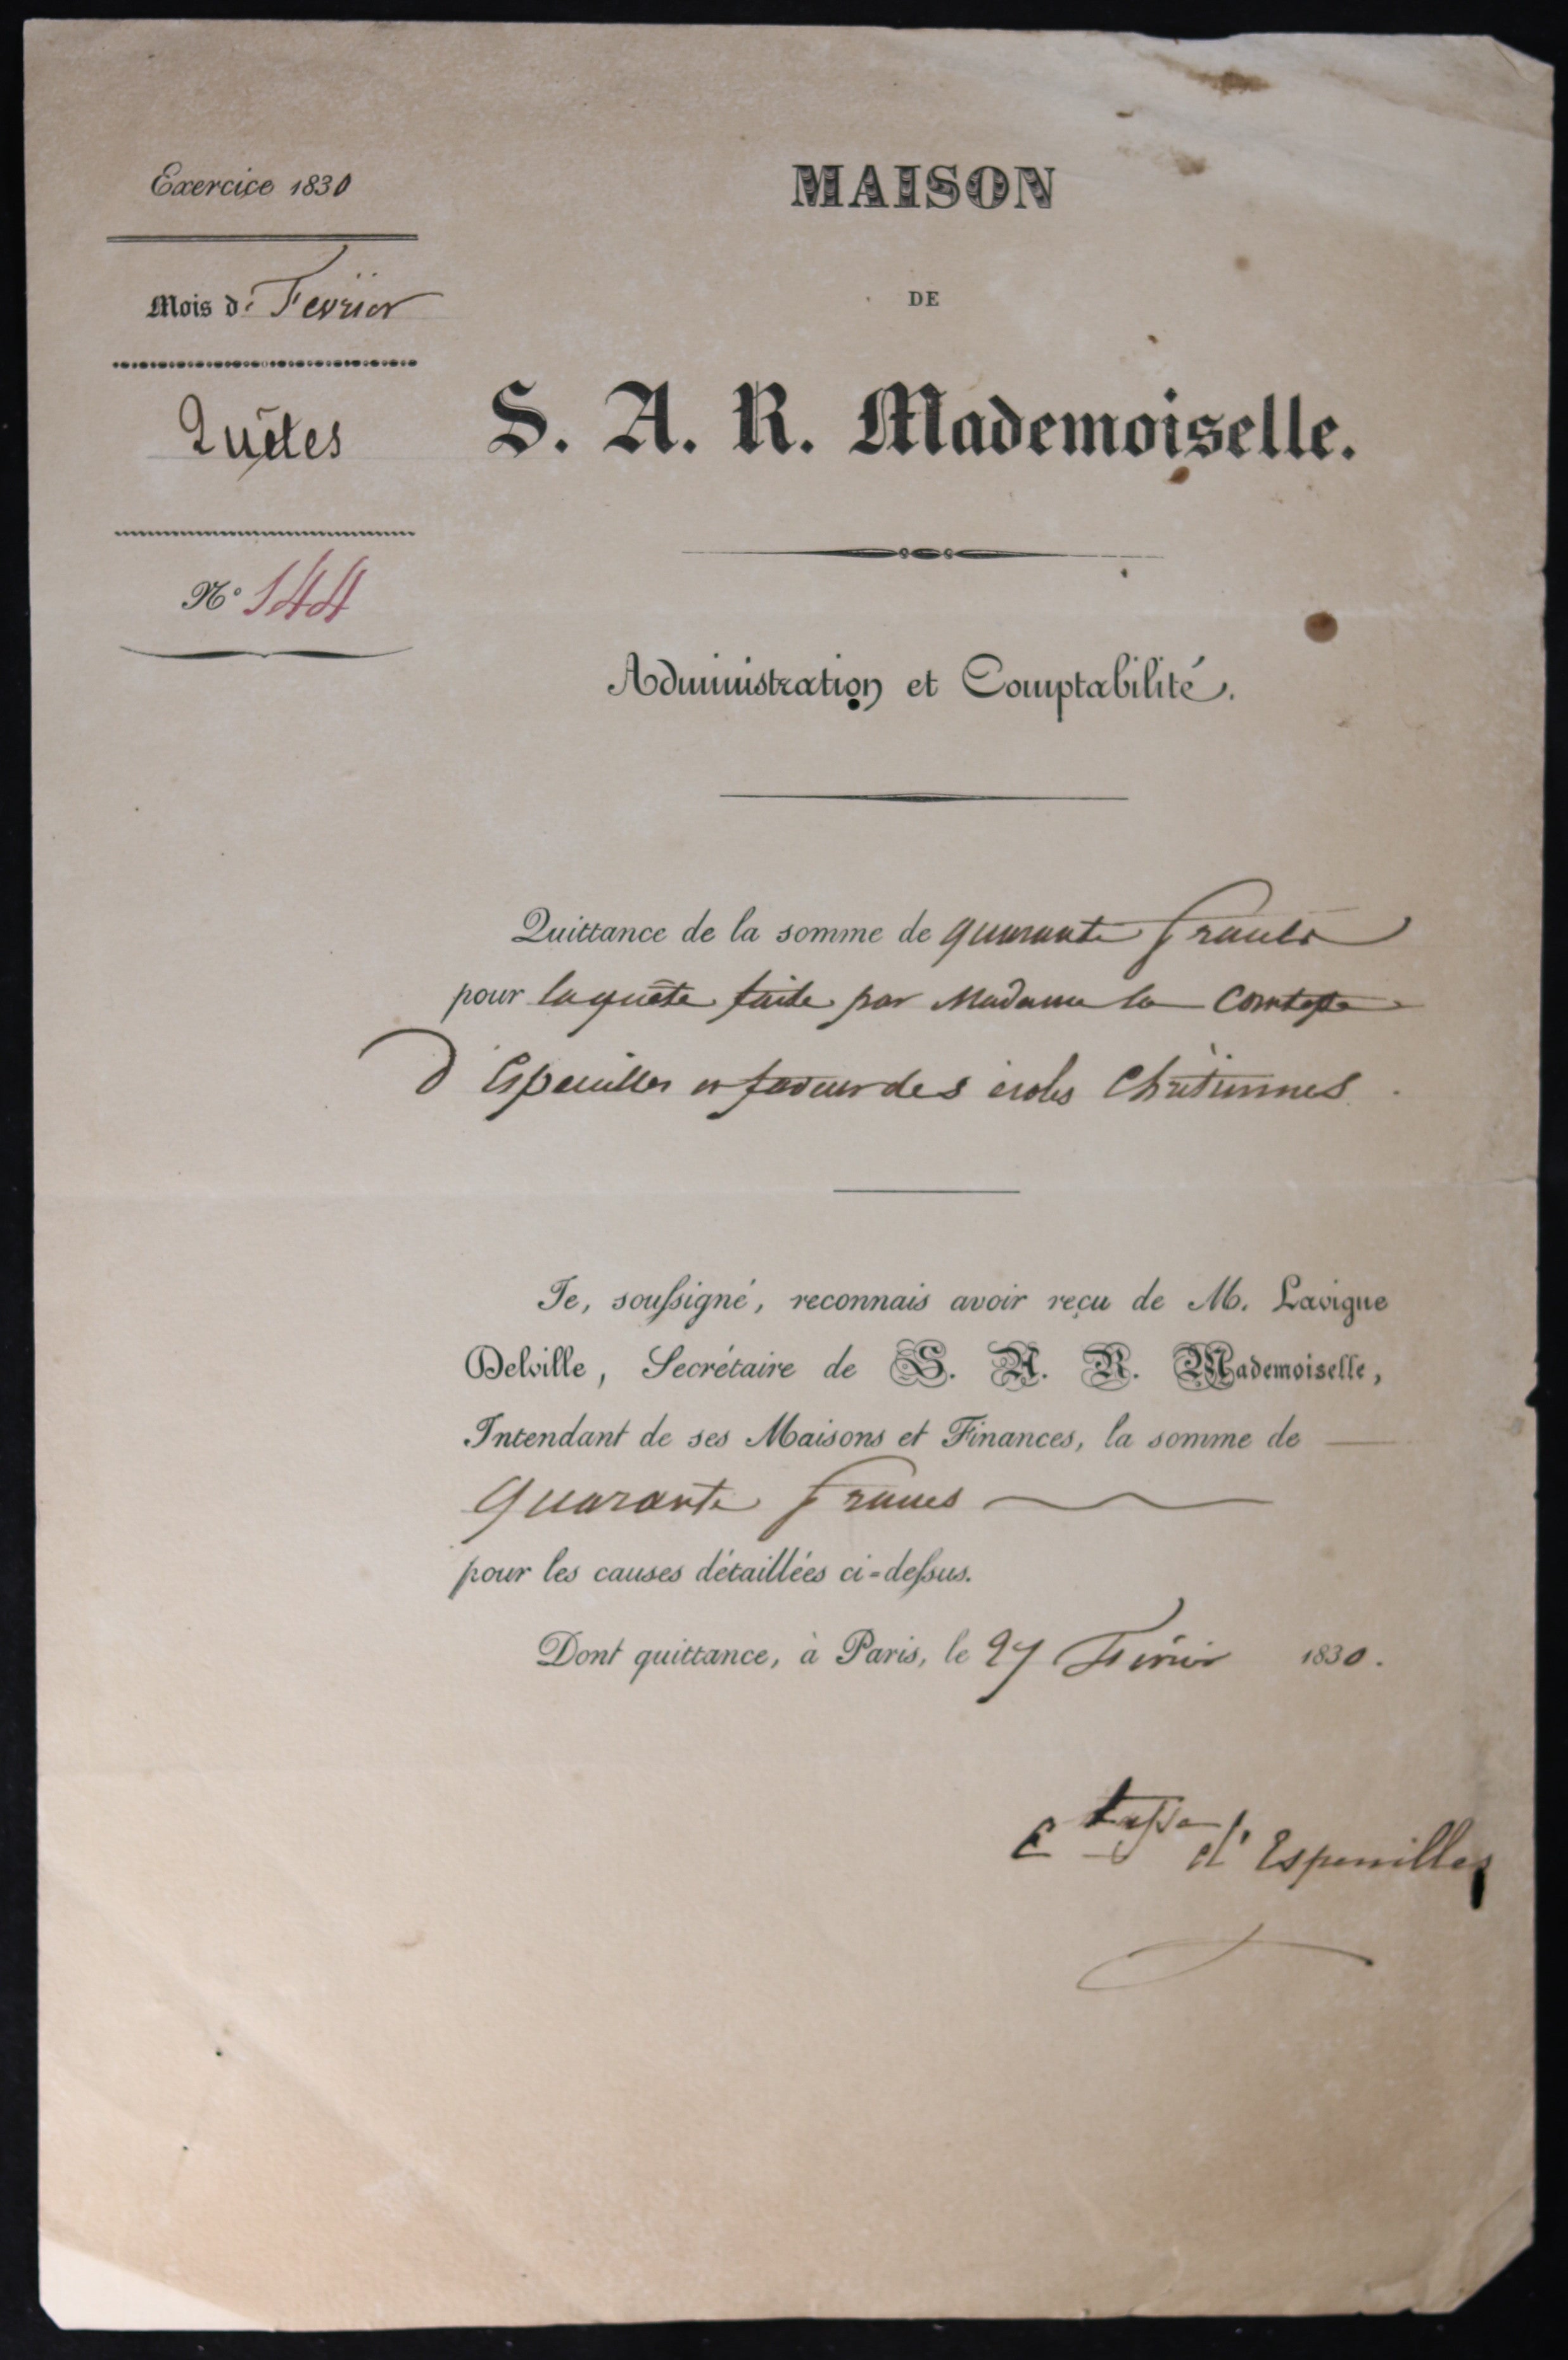 Exercice 1830
Mois de Février
Quêtes
N° 144
MAISON
DE
S. A. R. Mademoiselle.
Administration et Comptabilité.
Quittance de la somme de quarante francs
pour la quête faite par Madame la Comtesse
d'Espeuilles en faveur des écoles Chrétiennes.
Je, soussigné, reconnais avoir reçu de M. Lavigne
Delville, Secrétaire de S. A. R. Mademoiselle,
Intendant de ses Maisons et Finances, la somme de
quarante francs
pour les causes détaillées ci-dessus.
Dont quittance, à Paris, le 27 Février 1830.
Ctesse d'Espeuilles